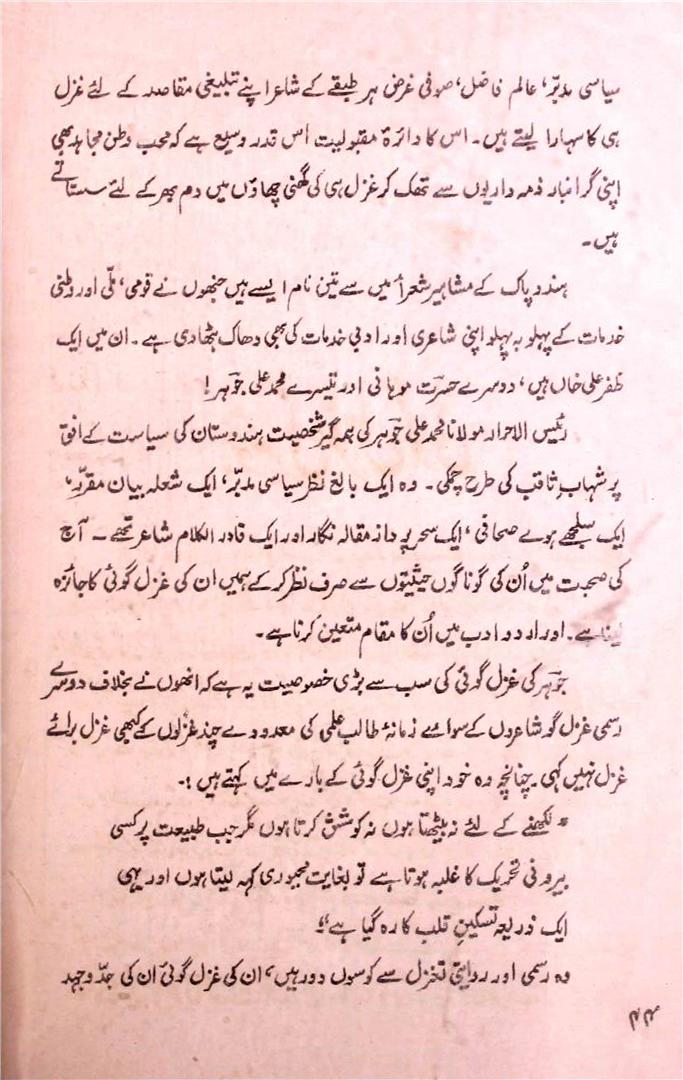 سیاسی مدبّر، عالم فاضل، صوفی غرض ہر طبقے کے شاعر اپنے تبلیغی مقاصد کے لئے غزل
ہی کا سہارا لیتے ہیں۔ اس کا دائرۂ مقبولیت اس قدر وسیع ہے کہ محب وطن مجاہد بھی
اپنی گرانبار ذمہ داریوں سے تھک کر غزل ہی کی گھنی چھاؤں میں دم بھر کے لئے سستاتے
ہیں۔
ہند و پاک کے مشاہیر شعرأ میں سے تین نام ایسے ہیں جنھوں نے قومی، ملّی اور وطنی
خدمات کے پہلو بہ پہلو اپنی شاعری اور ادبی خدمات کی بھی دھاک بٹھادی ہے۔ ان میں ایک
ظفر علی خاں ہیں، دوسرے حسرت موہانی اور تیسرے محمد علی جوہر!
رئیس الاحرار مولانا محمد علی جوہر کی ہمہ گیر شخصیت ہندوستان کی سیاست کے افق
پر شہابِ ثاقب کی طرح چمکی۔ وہ ایک بالغ نظر سیاسی مدبّر، ایک شعلہ بیان مقرّر،
ایک سلجھے ہوے صحافی، ایک سحر پرداز مقالہ نگار اور ایک قادر الکلام شاعر تھے۔ آج
کی صحبت میں اُن کی گوناگوں حیثیتوں سے صرف نظر کر کے ہمیں ان کی غزل گوئی کا جائزہ
لینا ہے۔ اور اردو ادب میں اُن کا مقام متعین کرنا ہے۔
جوہر کی غزل گوئی کی سب سے بڑی خصوصیت یہ ہے کہ انھوں نے بخلاف دوسرے
رسمی غزل گو شاعروں کے سوائے زمانۂ طالب علمی کی معدودے چند غزلوں کے کبھی غزل برائے
غزل نہیں کہی۔ چنانچہ وہ خود اپنی غزل گوئی کے بارے میں کہتے ہیں :۔
" لکھنے کے لئے نہ بیٹھتا ہوں نہ کوشش کرتا ہوں مگر جب طبیعت پر کسی
بیرونی تحریک کا غلبہ ہوتا ہے تو بغایت مجبوری کہہ لیتا ہوں اور یہی
ایک ذریعہ تسکینِ قلب کا رہ گیا ہے"۔
وہ رسمی اور روایتی تغزل سے کوسوں دور ہیں، ان کی غزل گوئی ان کی جدّ و جہد
۴۴